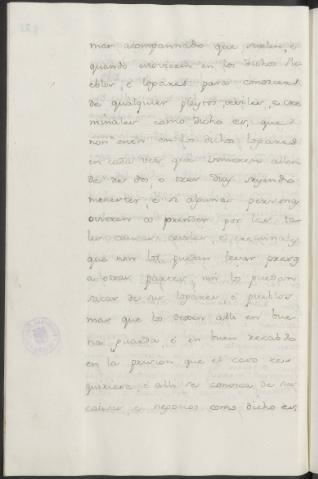 mas acompannado que suelen, e
quando enviaren en los dichos Pu
eblos, e logares para conoscer
de qualquier pleytos ceviles, e cri
minales como dicho es, que
non esten en los dichos logares
en cada ves que vinieren allen
de de dos, o tres dias seyendo
menester, e si algunas personas
ovieren a prender por las ta
les causas ceviles, e criminales
que non los puedan levar presos
a otras partes, nin los puedan
sacar de sus logares, e pueblos
mas que los dexen alli en bue
na guarda e en buen recabdo
en la prision que el caso req
quiriere, e alli se conosca de sus
causas, e negocios como dicho es,